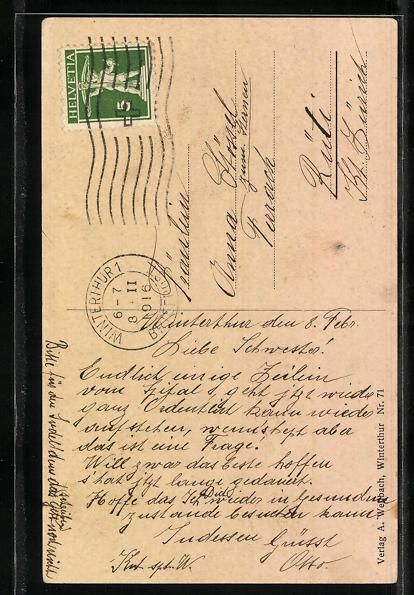 HELVETIA
5
WINTERTHUR 1
6-7
8 II
1916
BRIEFVERSAND
Fräulein
Anna Stössel
zum Sternen
Rüti
Kt. Zürich
Winterthur den 8. Febr.
Liebe Schwester!
Endlich einige Zeilen
vom Spital s, geht jtz wieder
ganz Ordentlich kann wieder
aufstehen, wenn's hept aba
das ist eine Frage!
Will zwar das beste hoffen
s'hat jtzt lange gedauert.
Hoffe das Dich wieder in Gesunden
zustande besuchen kann
Indessen Grüsst
Otto
Kt. spt. W.
Bitte für den
Verlag A. Weibach, Winterthur Nr. 71